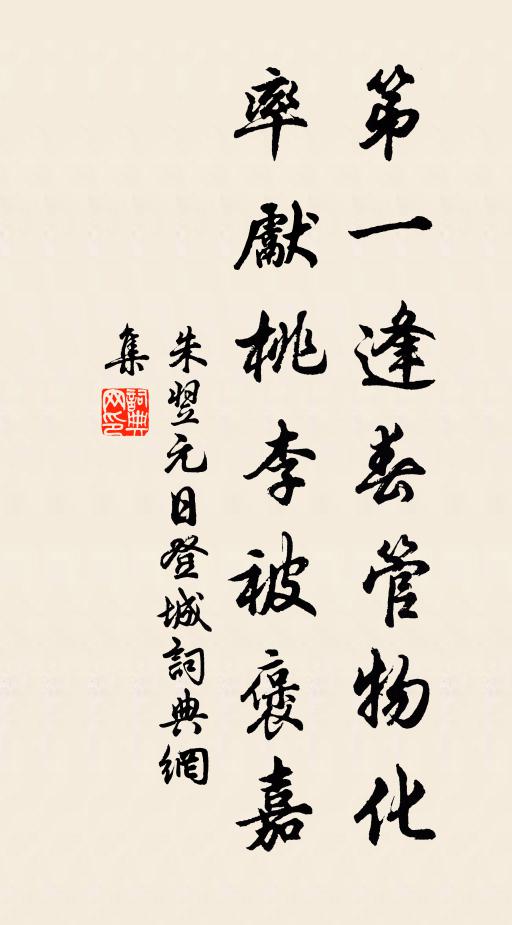 第一逢春管物化
率獻桃李被褒嘉
朱翌元日登城詞典網
集
詞典网印